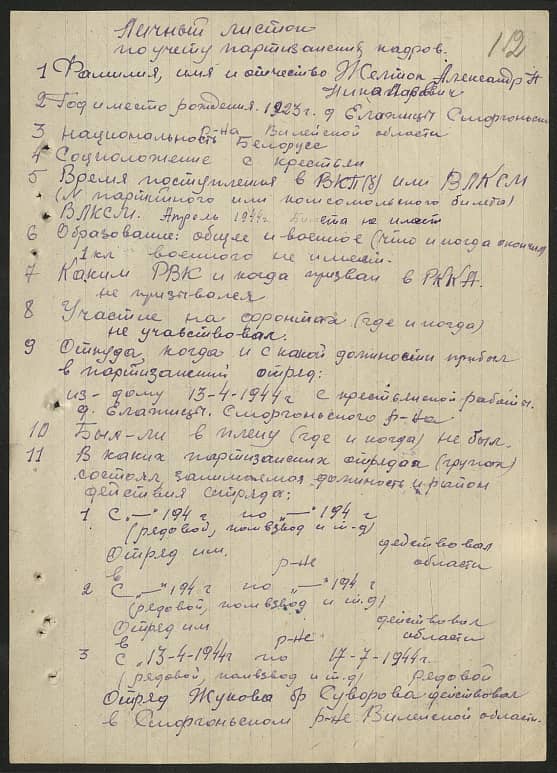 Личный листок
по учету партизанских кадров.
112
1 Фамилия, имя и отчество Желток Александр
Никанорович
2 Год и место рождения. 1923 г. д Елажицы Сморгоньского
р-на Вилейской области
3 Национальность Белорусс
4 Соцположение с крестьян
5 Время поступления в ВКП(б) или ВЛКСМ
(N партийного или комсомольского билета)
ВЛКСМ. Апрель 1944г Билета не имет
6 Образование: общее и военное (что и когда окончил)
1 кл военного не имеет.
7 Каким РВК и когда призван в РККА.
не призывался
8 Участие на фронтах (где и когда)
не учавствовал.
9 Откуда, когда и с какой должности прибыл
в партизанский отряд:
из-дому 13-4-1944г с крестьянской работы.
д. Елажицы. Сморгоньского р-на
10 Был-ли в плену (где и когда) не был.
11 В каких партизанских отрядах (групах)
состоял, занимаемая должность и район
действия отряда:
1 С „—" 194 г по „—" 194 г
(рядовой, помвзвод и т-д)
Отряд им. действовал
в р-не области
2 С „—" 194 г по „—" 194 г
(рядовой, помвзвод и т.д)
Отряд им действовал
в р-не области
3 С „13-4-1944г по 17-7-1944г.
(рядовой, помвзвод и т-д) рядовой
Отряд Жукова бр Суворова действовал
в Сморгоньском р-не Вилейской област.